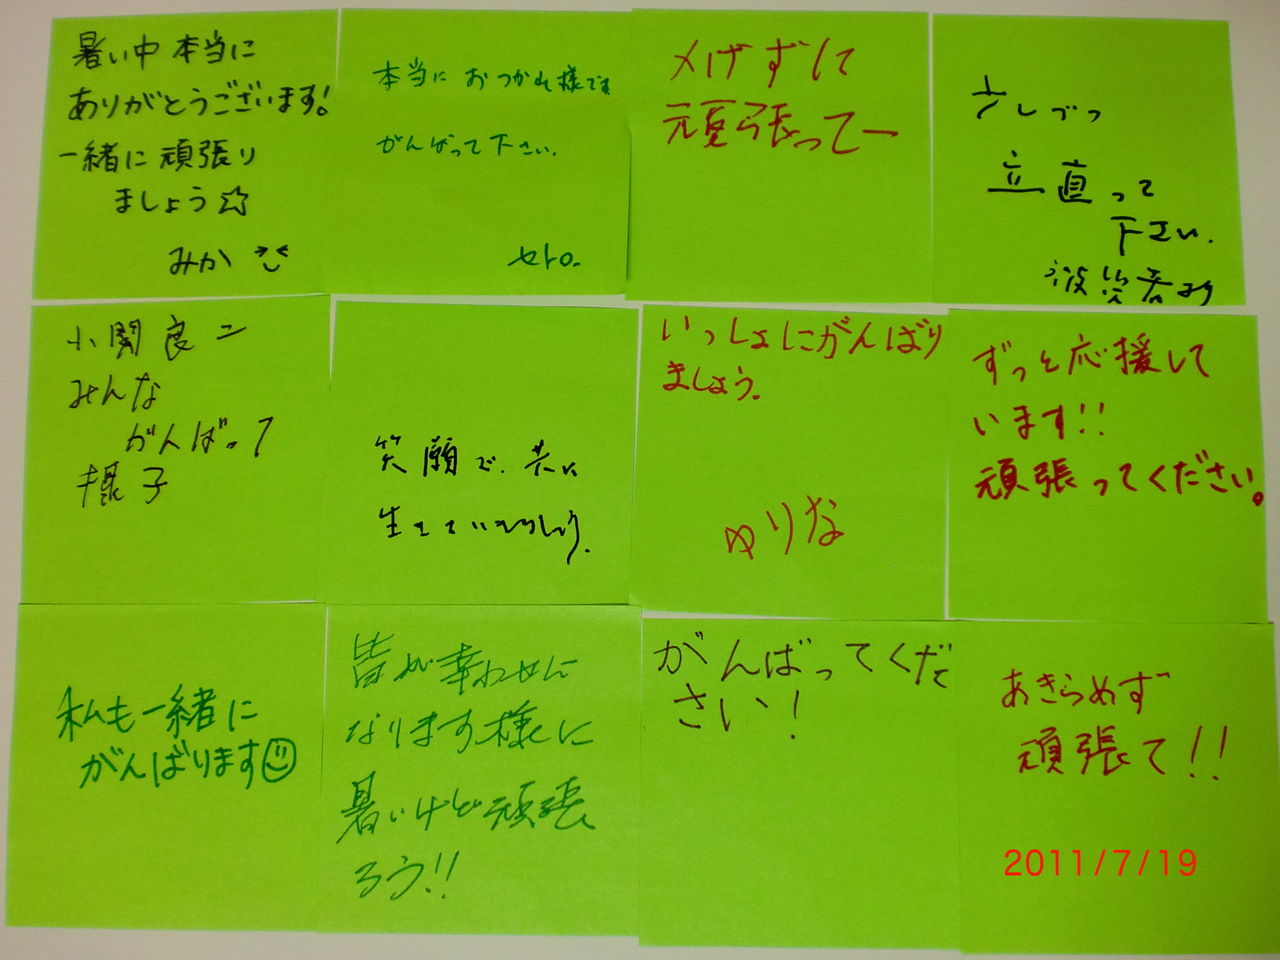 暑い中本当に
ありがとうございます!
一緒に頑張り
ましょう☆
みか
本当におつかれ様です
がんばって下さい。
セトロ。
メげずに
頑張ってー
少しづつ
立直って
下さい。
被災者より
小関良二
みんな
がんばって
子
笑顔で、共に
生きていきましょう。
いっしょにがんばり
ましょう。
ゆりな
ずっと応援して
います!!
頑張ってください。
私も一緒に
がんばります
皆が幸わせに
なります様に
暑いけど頑張
ろう!!
がんばってくだ
さい!
あきらめず
頑張て!!
2011/7/19